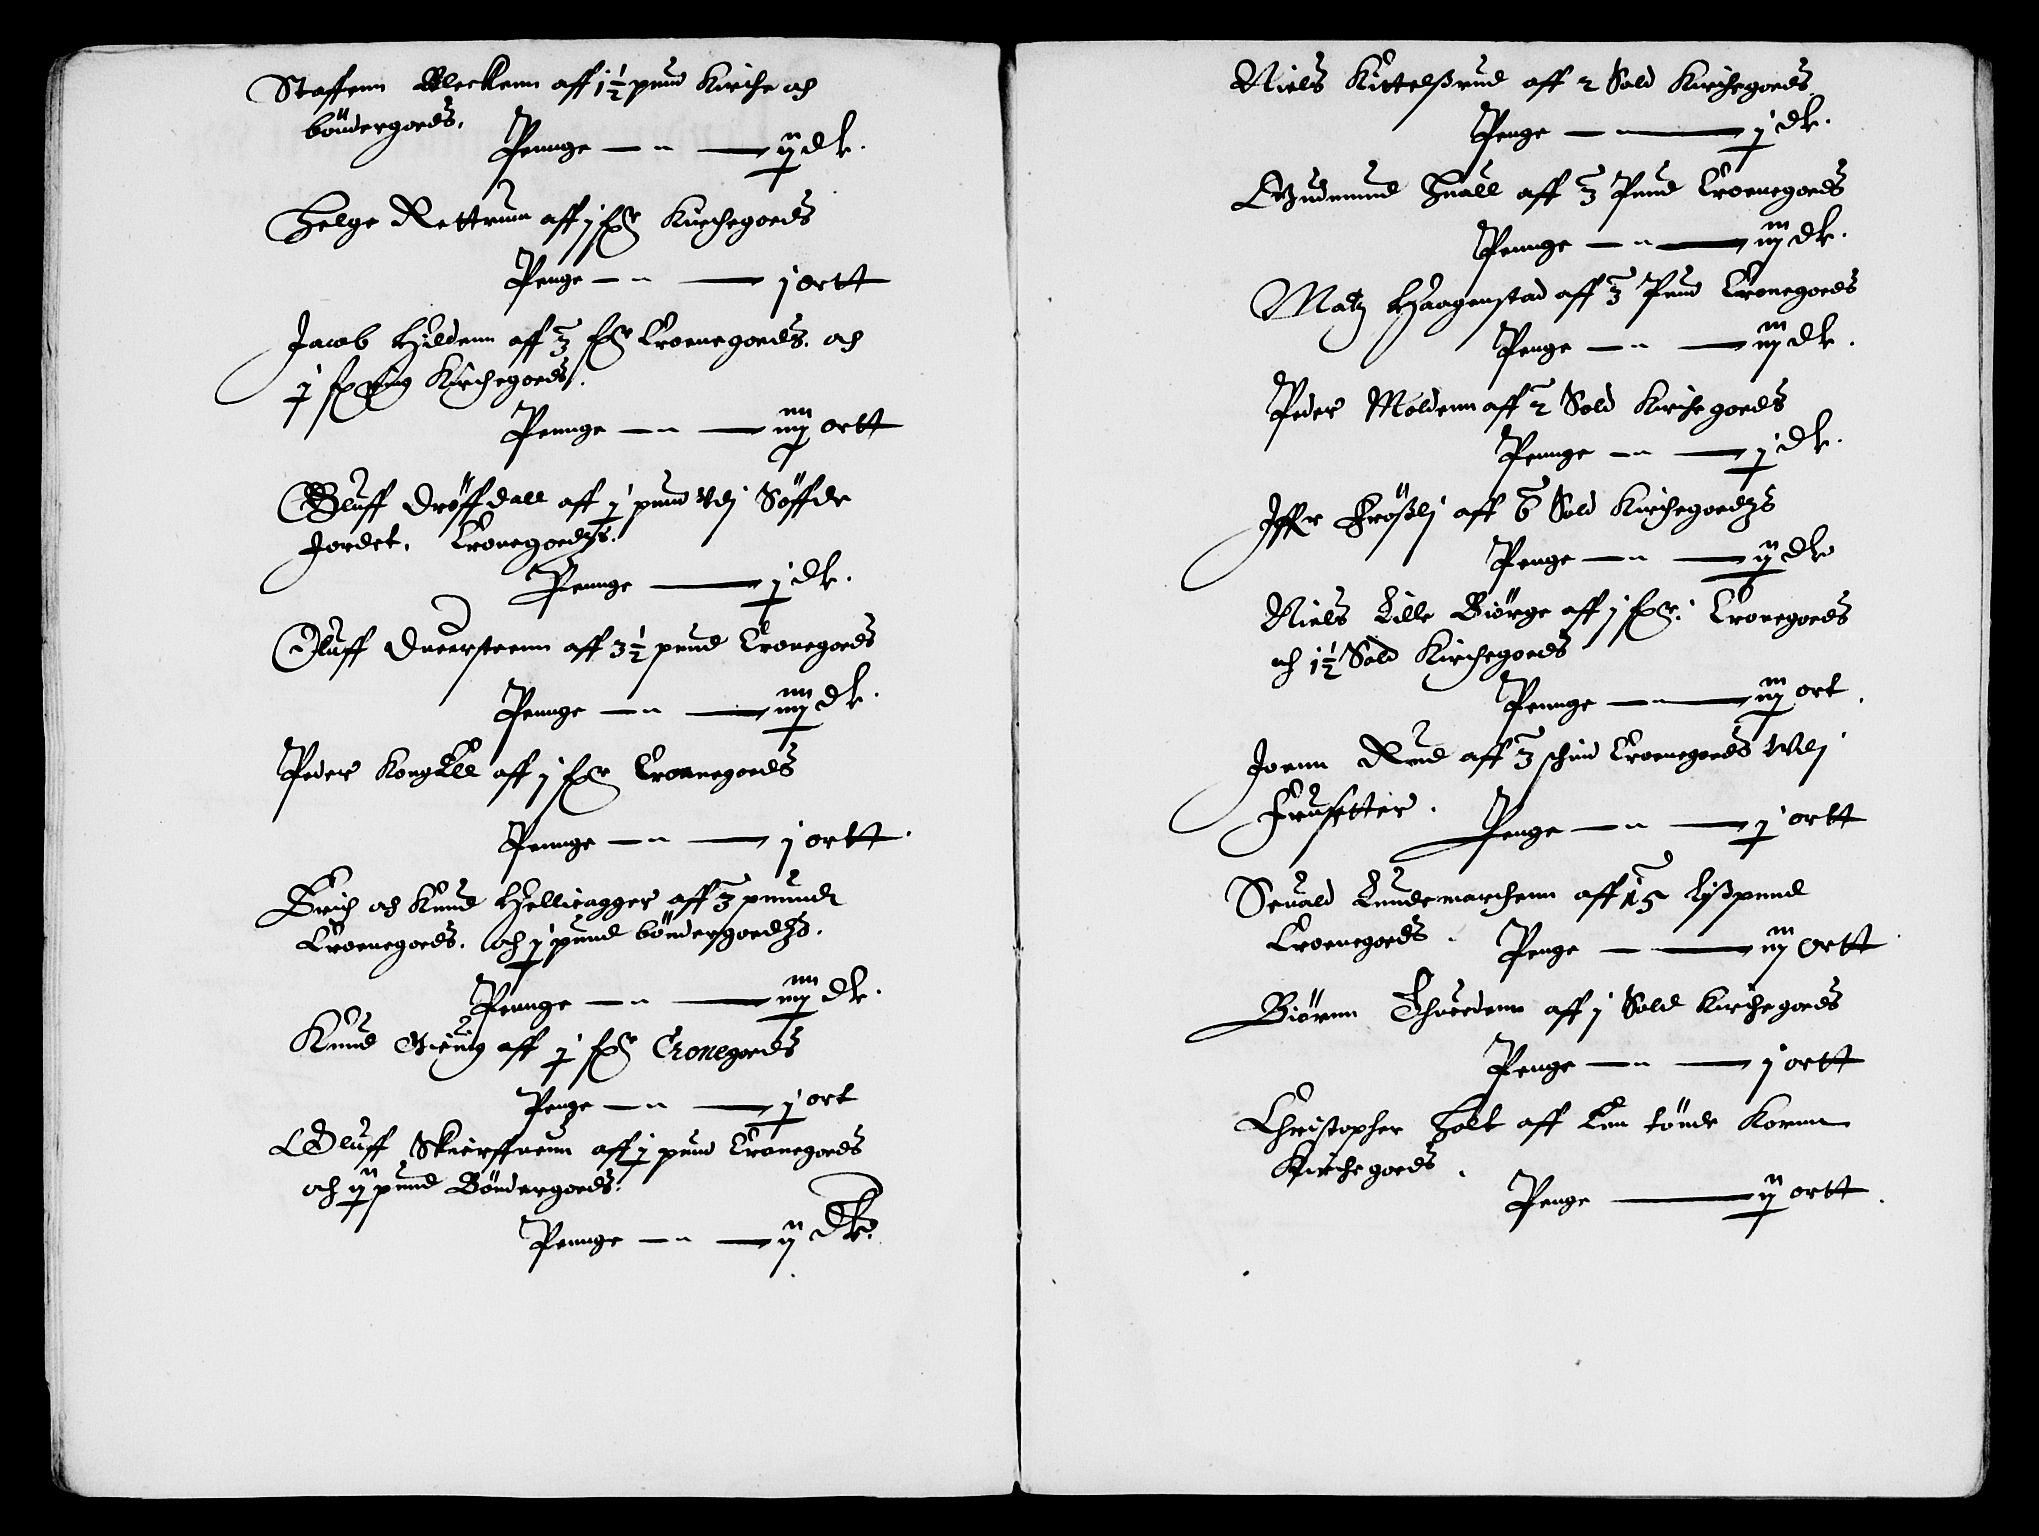 Staffenn Bleckenn aff 1½ pund Kirche och
böndergoeds.
Pennge — " — ij dlr.
Helge Rettrum aff j fr Kirchegoeds
Penge — " — j ortt
Jacob Hildenn aff 3 fr Croenegoeds. och
j fring Kirchegoeds.
Pennge — " — iiij ortt
Oluff Dröffdall aff j pund Vdj Söffde
Jordet. Cronegoedzs.
Pennge — j dlr.
Oluff Dueersteenn aff 3½ pund Cronegoeds
Pennge — " — iiij dlr.
Peder KongEll aff j fr Croenegoeds
Pennge — " — j ortt.
Erich och Knud Hellieagger aff 3 puundt
Croenegoeds. och j pund böndergoedzs.
Pennge — " — iiij dlr.
Knud aff j fr Cronegoeds
Penge — " — j ort
Oluff Skierffuenn aff j pund Cronegoeds
och ij pund Böndergoeds.
Pennge — " — ij dlr.
Niels Kittelßrud aff 2 Sold Kirchegoeds
Penge — " — j dlr.
Gudmund Huall aff 3 Pund Croenegoeds
Pennge — " — iij dlr.
Matz Haagenstad aff 3 Pund Cronegoeds
Penge — " — iij dlr.
Peder Moldenn aff 2 Sold Kirchegoeds
Pennge — " — j dlr.
Iffr Frößlj aff 6 Sold Kirchegoedzs
Penge — " — ij dlr
Niels Lille Biörge aff j fr. Cronegoeds
och 1½ Sold Kirchegoeds
Pennge — " — iij ort.
Joenn Rud aff 3 schind Croenegoeds Vdj
Frusetter. Penge — " — j ortt
Seuald Lundemarchenn aff 15 Lißpund
Croenegoeds. Penge — " — iij ortt
Biörnn Thueedenn aff j Sold Kirchegoeds
Penge — " — j ortt
Christopher Holt aff Een tönde Kornn
Kirchegoeds.
Penge — ij ortt.